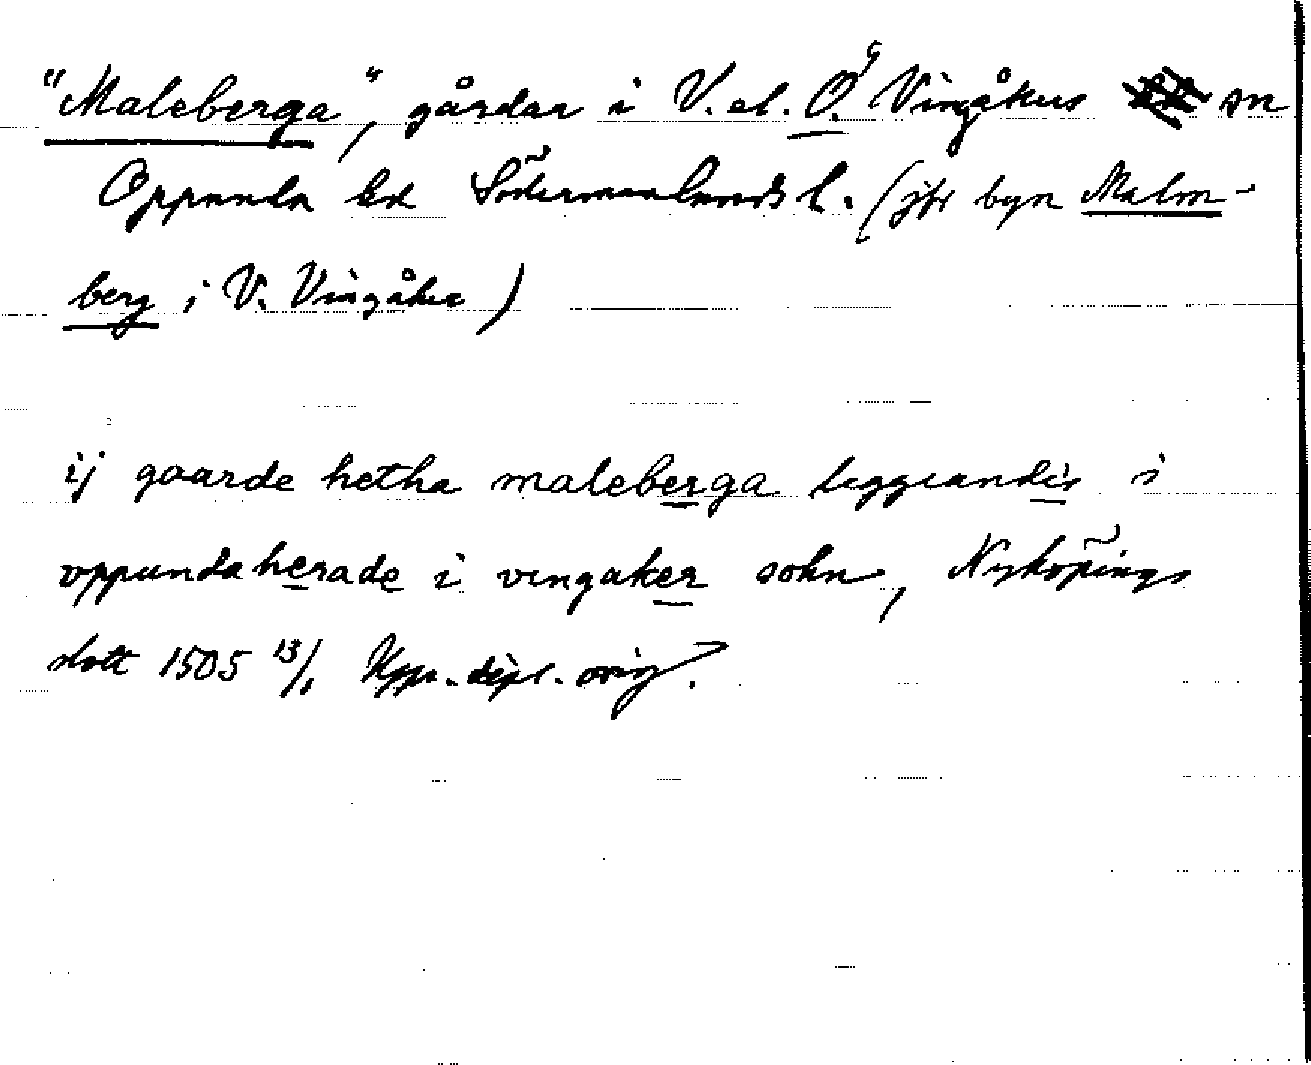 "Maleberga", gårdar i V. el. Ö. Vingåkers sn
Oppunda hd Södermanlands l. (jfr byn Malm-
berg i V. Vingåker)
ij gaarde hetha maleberga liggiandis i
oppunda herade i vingaker sokn, Nyköpings
slott 1505 13/1 Upps. dipl. orig.